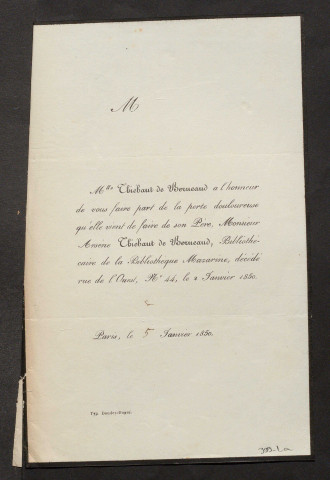 M
M.lle Thiébaut de Berneaud a l'honneur
de vous faire part de la perte douloureuse
qu'elle vient de faire de son Père, Monsieur
Arsène Thiébaut de Berneaud, Bibliothé-
caire de la Bibliothèque Mazarine, décédé
rue de l'Ouest, N.o 44, le 4 Janvier 1850.
Paris, le 5 Janvier 1850.
Typ.